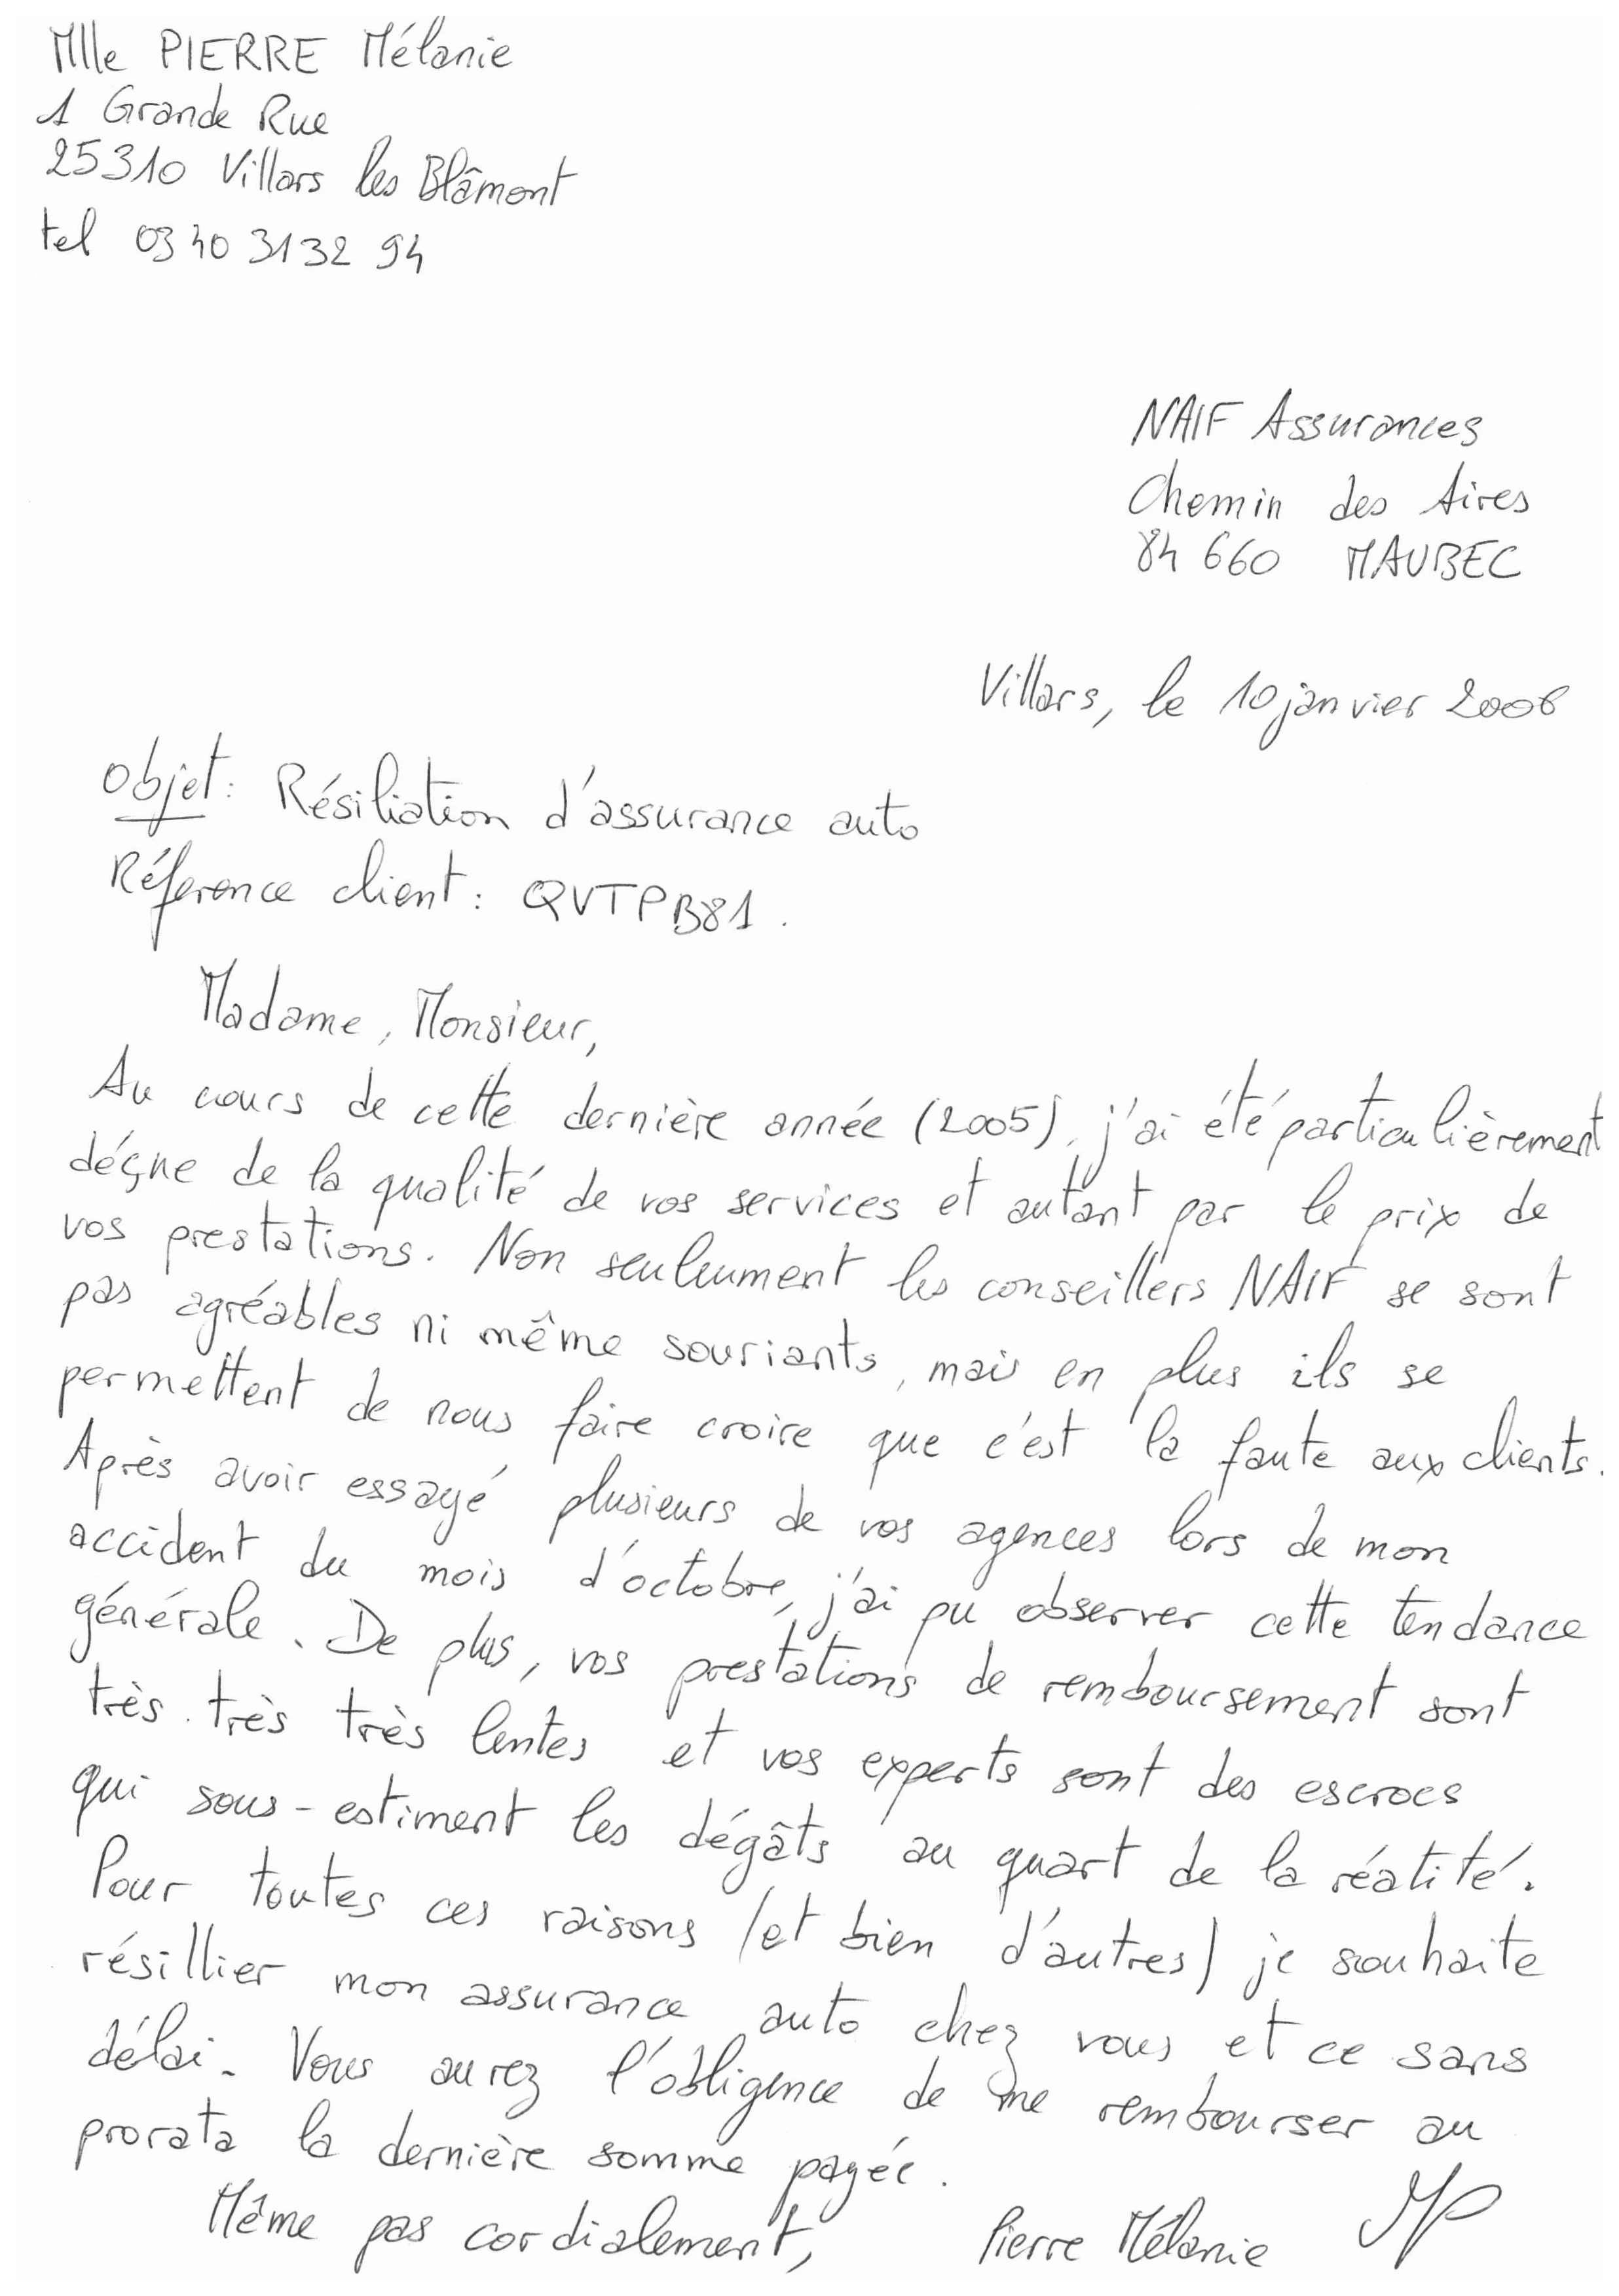 Mlle PIERRE Mélanie
1 Grande Rue
25310 Villars les Blâmont
tel 03 40 31 32 94
NAIF Assurances
Chemin des Aires
84 660 MAUBEC
Villars, le 10 janvier 2006
objet : Résiliation d'assurance auto
Réference client : QVTPB81.
Madame, Monsieur,
Au cours de cette dernière année (2005), j'ai été particulièrement
déçue de la qualité de vos services et autant par le prix de
vos prestations. Non seuleument les conseillers NAIF se sont
pas agréables ni même souriants, mais en plus ils se
permettent de nous faire croire que c'est la faute aux clients.
Après avoir essayé plusieurs de vos agences lors de mon
accident du mois d'octobre, j'ai pu observer cette tendance
générale. De plus, vos prestations de remboursement sont
très très très lentes et vos experts sont des escrocs
qui sous-estiment les dégâts au quart de la réalité.
Pour toutes ces raisons (et bien d'autres) je souhaite
résillier mon assurance auto chez vous et ce sans
délai. Vous aurez l'obligence de me rembourser au
prorata la dernière somme payée.
Même pas cordialement,
Pierre Mélanie
MP